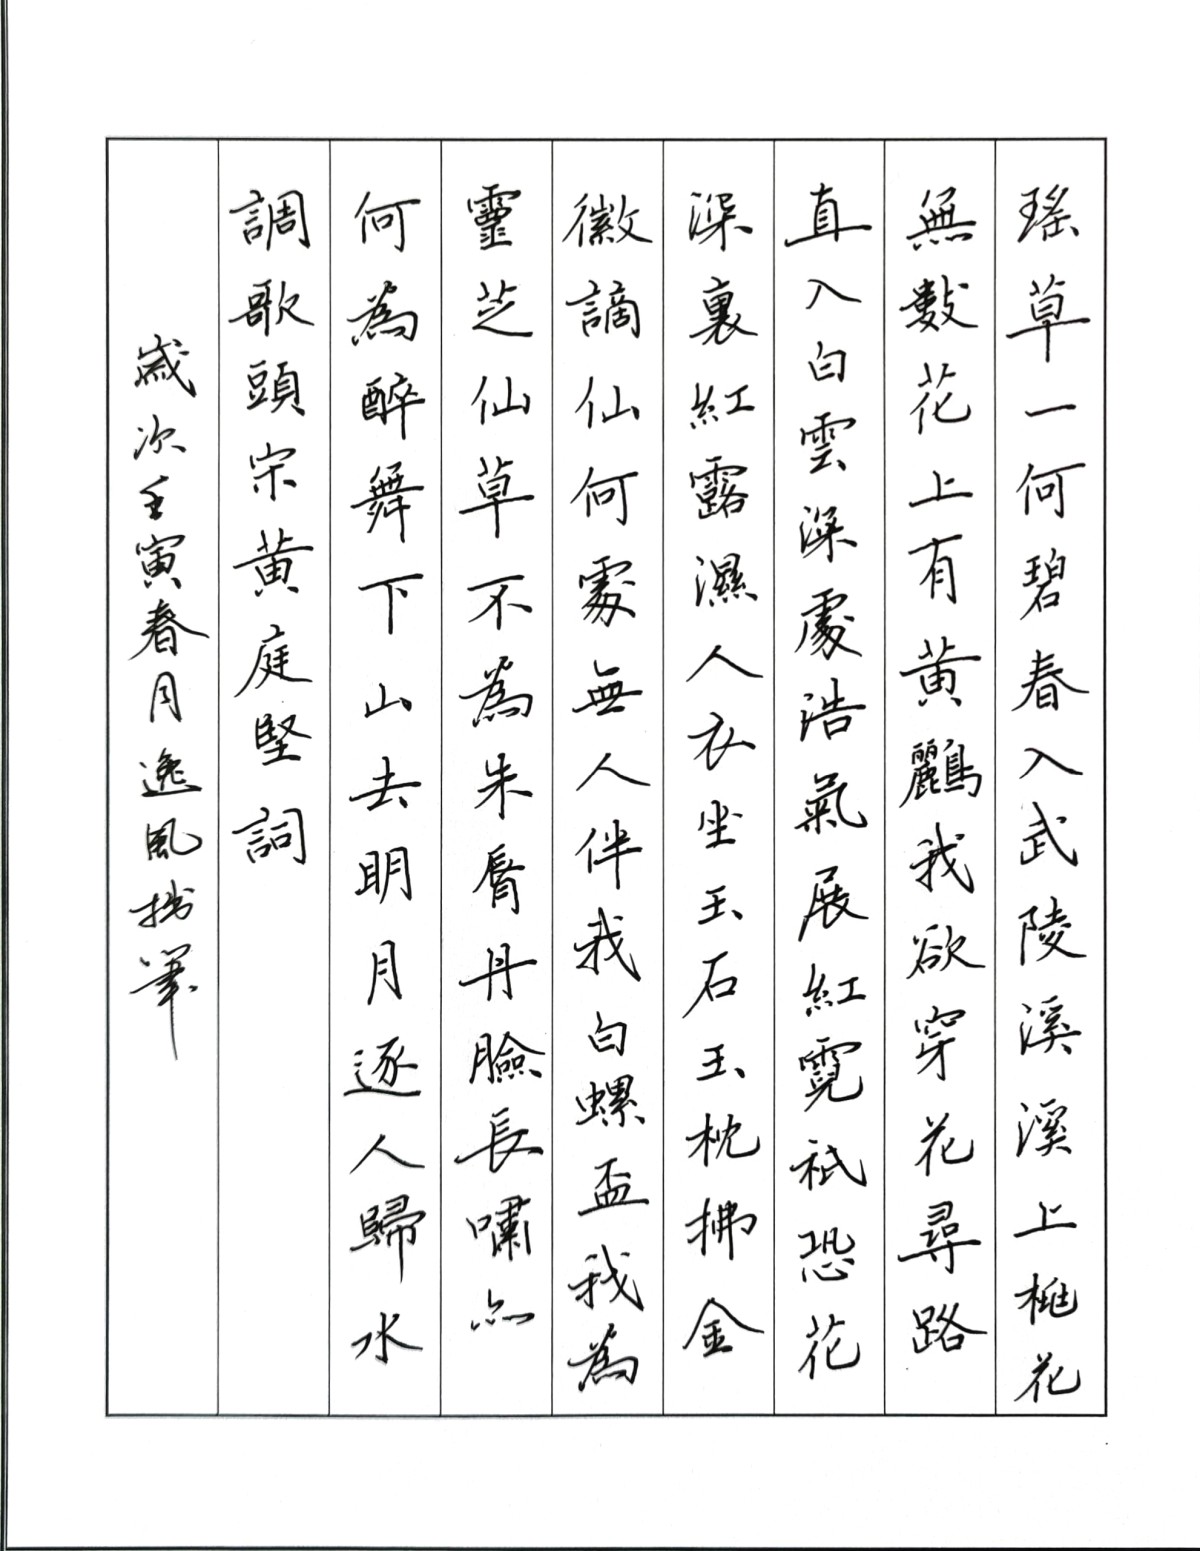 瑤草一何碧春入武陵溪溪上桃花
無數花上有黃鸝我欲穿花尋路
直入白雲深處浩氣展紅霓祇恐花
深裏紅露濕人衣坐玉石玉枕拂金
徽謫仙何處無人伴我白螺盃我為
靈芝仙草不為朱脣丹臉長嘯亦
何為醉舞下山去明月逐人歸水
調歌頭宋黃庭堅詞
歲次壬寅春月逸風拙筆